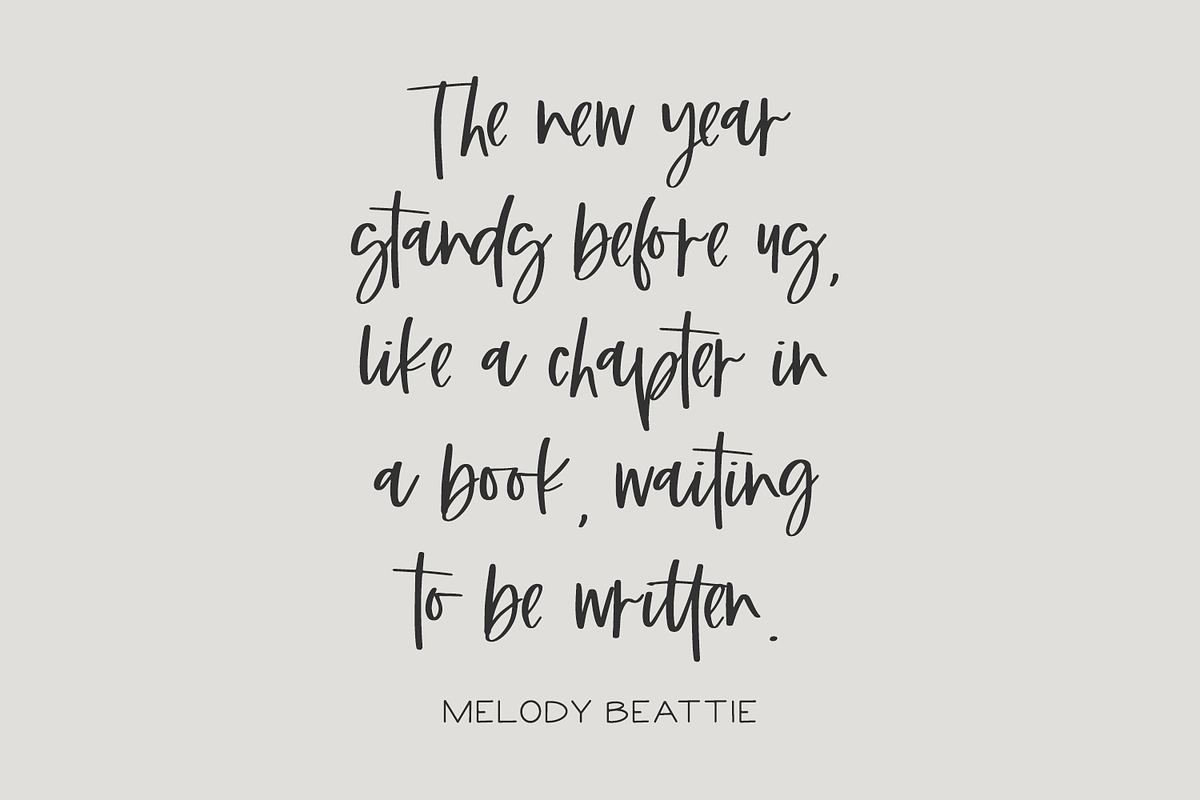 The new year
stands before us,
like a chapter in
a book, waiting
to be written.
MELODY BEATTIE